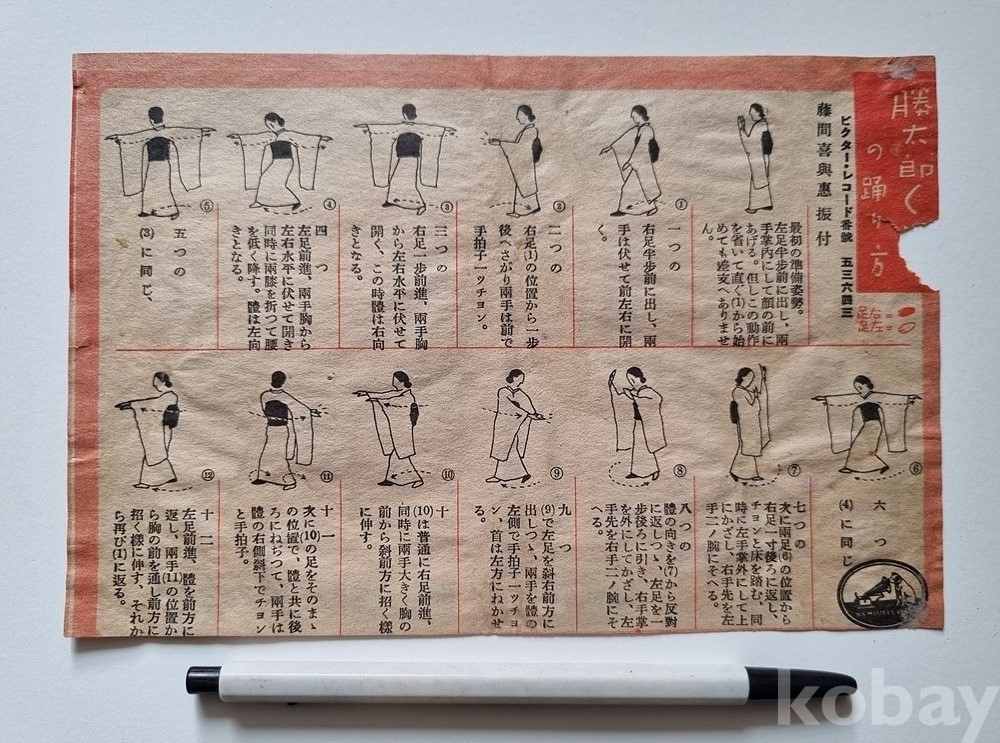 勝太郎く
の踊り方
ビクター・レコード番號 五三六四三
藤間喜與惠 振付
足右=
足左=
最初の準備姿勢。
左足半步前に出し、兩
手掌內にして顏の前に
あげる。但しこの動作
を省いて直ぐ(1)から始
めても差支へありませ
ん。
①
一つの
右足半步前に出し、兩
手は伏せて前左右に開
く。
②
二つの
右足(1)の位置から一步
後へさがり兩手は前で
手拍子一ッチョン。
③
三つの
右足一步前進、兩手胸
から左右水平に伏せて
開く、この時體は右向
きとなる。
④
四つ
左足前進、兩手胸から
左右水平に伏せて開き
同時に兩膝を折つて腰
を低く降す。體は左向
きとなる。
⑤
五つの
(3)に同じ、
⑥
六つ
(4)に同じ
⑦
七つの
次に兩足(6)の位置から
右足一寸後ろに返し、
チョンと床を踏む、同
時に左手掌外にして上
にかざし、右手先を左
手二ノ腕にそへる。
⑧
八つの
體の向きを(7)から反對
に返しつゝ、左足を一
步後ろに引き、右手掌
を外にしてかざし、左
手先を右手二ノ腕にそ
へる。
⑨
九つ
(9)で左足を斜右前方に
出しつゝ、兩手を體の
左側で手拍子一ッチョ
ン、首は左方にねかせ
る。
⑩
十
(10)は普通に右足前進、
同時に兩手大きく胸の
前から斜前方に招く樣
に伸す。
⑪
十一
次に(10)の足をそのまゝ
の位置で、體と共に後
ろにねぢつて、兩手は
體の右側斜下でチョン
と手拍子。
⑫
十二
左足前進、體を前方に
返し、兩手(11)の位置か
ら胸の前を通し前方に
招く樣に伸す、それか
ら再び(1)に返る。
kobay